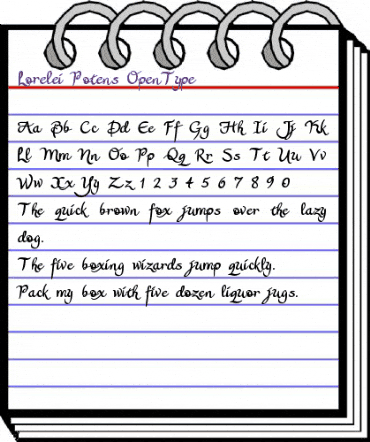 Lorelei Potens OpenType
Aa Bb Cc Dd Ee Ff Gg Hh Ii Jj Kk
Ll Mm Nn Oo Pp Qq Rr Ss Tt Uu Vv
Ww Xx Yy Zz 1 2 3 4 5 6 7 8 9 0
The quick brown fox jumps over the lazy
dog.
The five boxing wizards jump quickly.
Pack my box with five dozen liquor jugs.